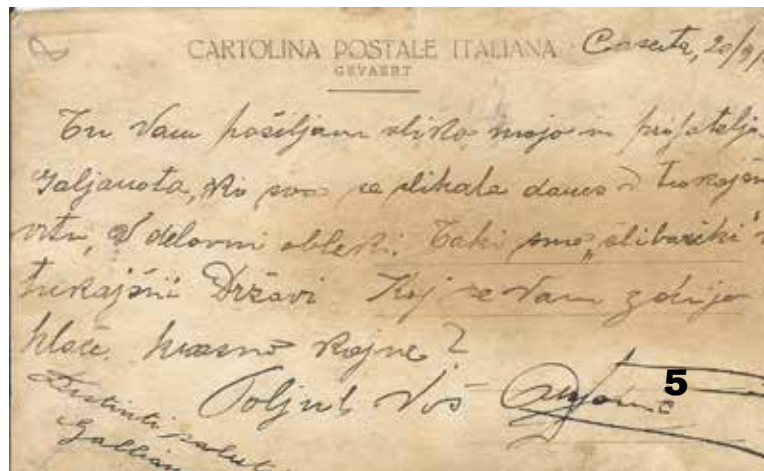 CARTOLINA POSTALE ITALIANA Caserta, 20/9/
GEVAERT
Tu Vam pošiljam sliko mojo in prijatelja
Galjanota, ko sva se slikala danes v tukajšn
vrtu, v delovni obleki. Taki smo „šlibariki"
tukajšnii Državi. Kaj se Vam zdijo
hlače, krasne kajne?
Poljub Vaš
5
Distinti saluti
Gallian